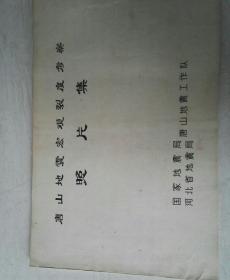 唐山地震宏观裂度考察
照片集
国家地震局
河北省地震局
唐山地震工作队